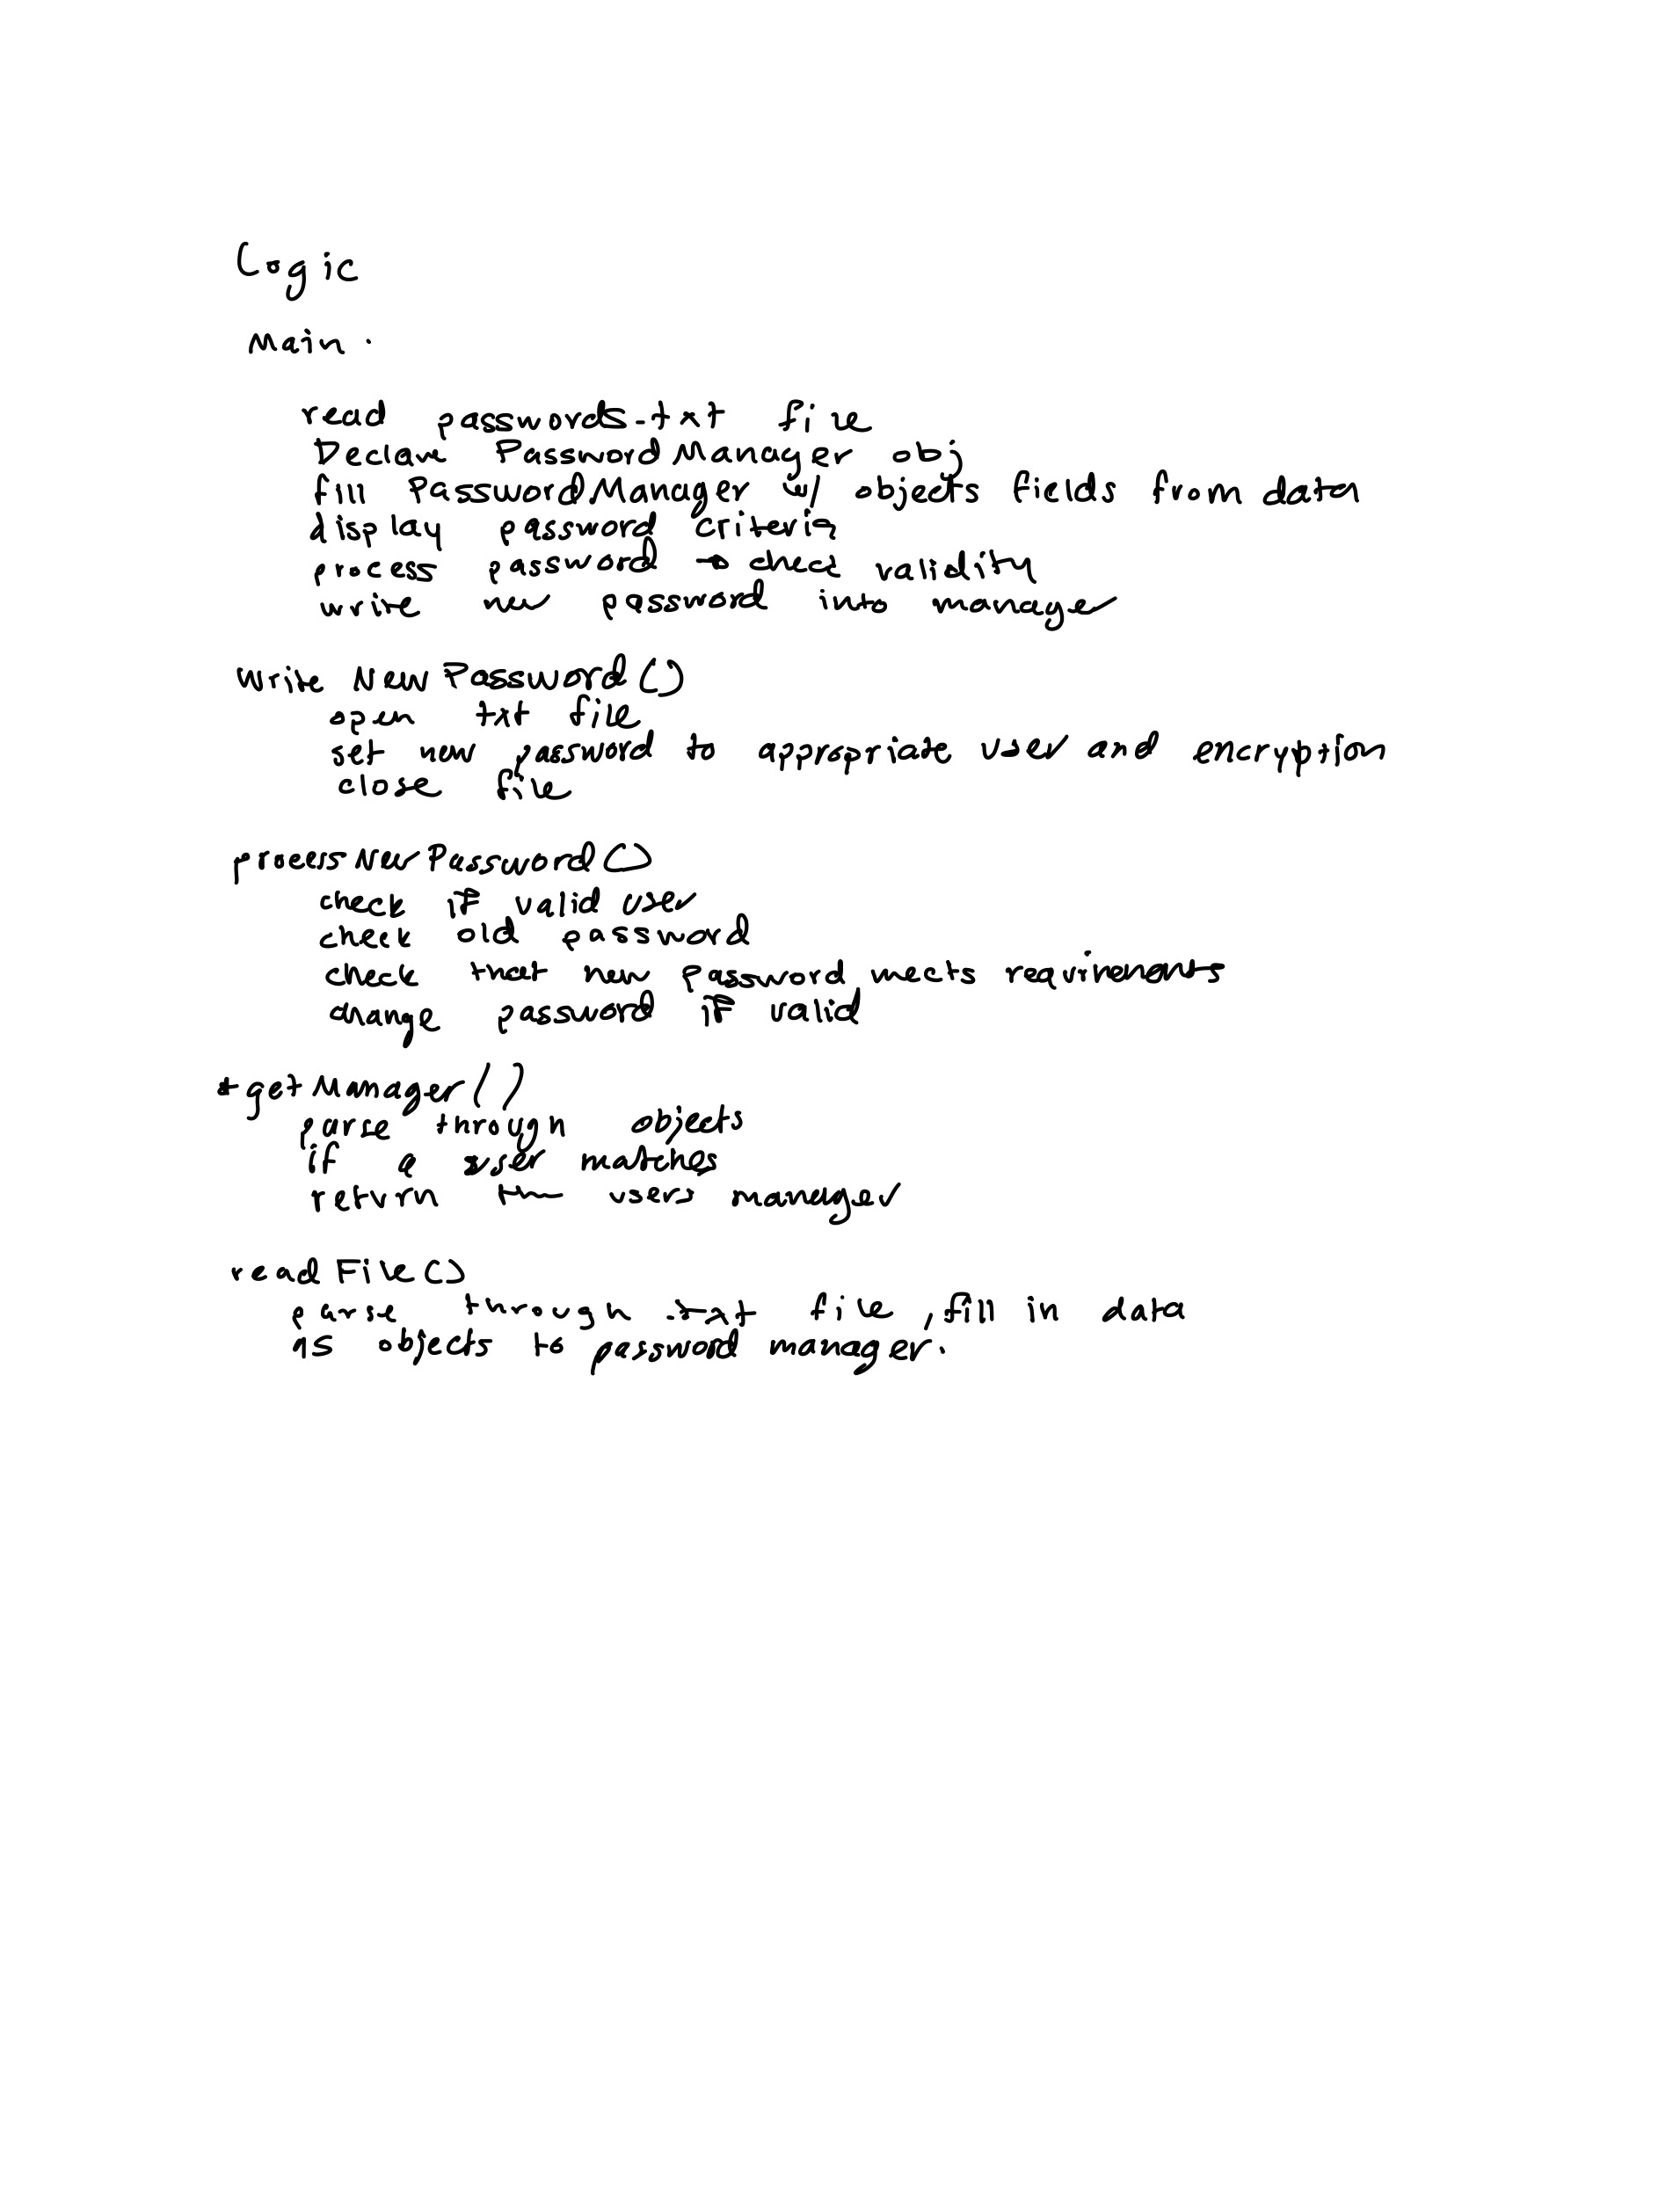 Logic
Main.
read passwords.txt file
Declare PasswordManager obj
fill PasswordManager w/ objects fields from data
display password criteria
process password → check validity
write new password into manager
Write New Password ()
open txt file
set new password to appropriate user and encryption
close file
process New Password ()
check if valid user
check old password
check that new password meets requirements
change password if valid
*get Manager ()
parse through objects
if a user matches
return the users manager
read File ()
parse through .txt file, fill in data
as objects to password manager.